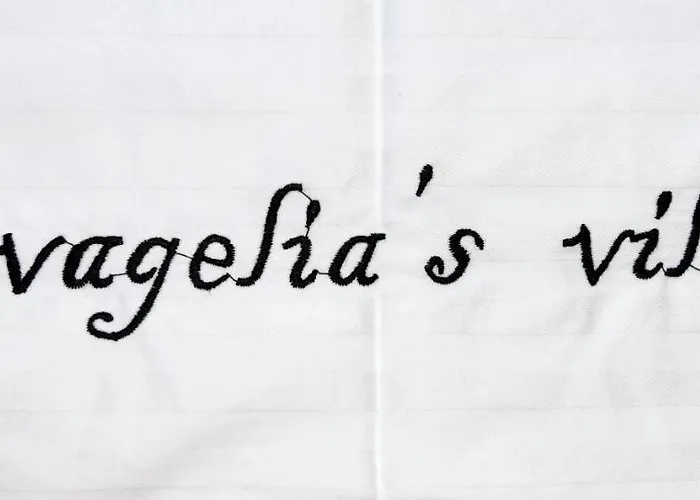 vagelia's vil